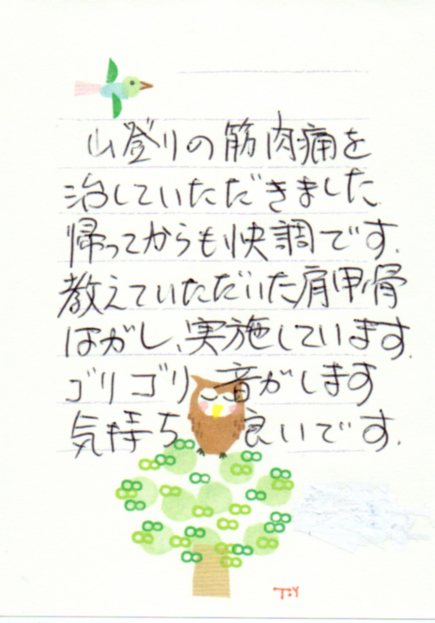 山登りの筋肉痛を
治していただきました.
帰ってからも快調です.
教えていただいた肩甲骨
はがし、実施しています.
ゴリゴリ 音がします
気持ち 良いです.
T:Y